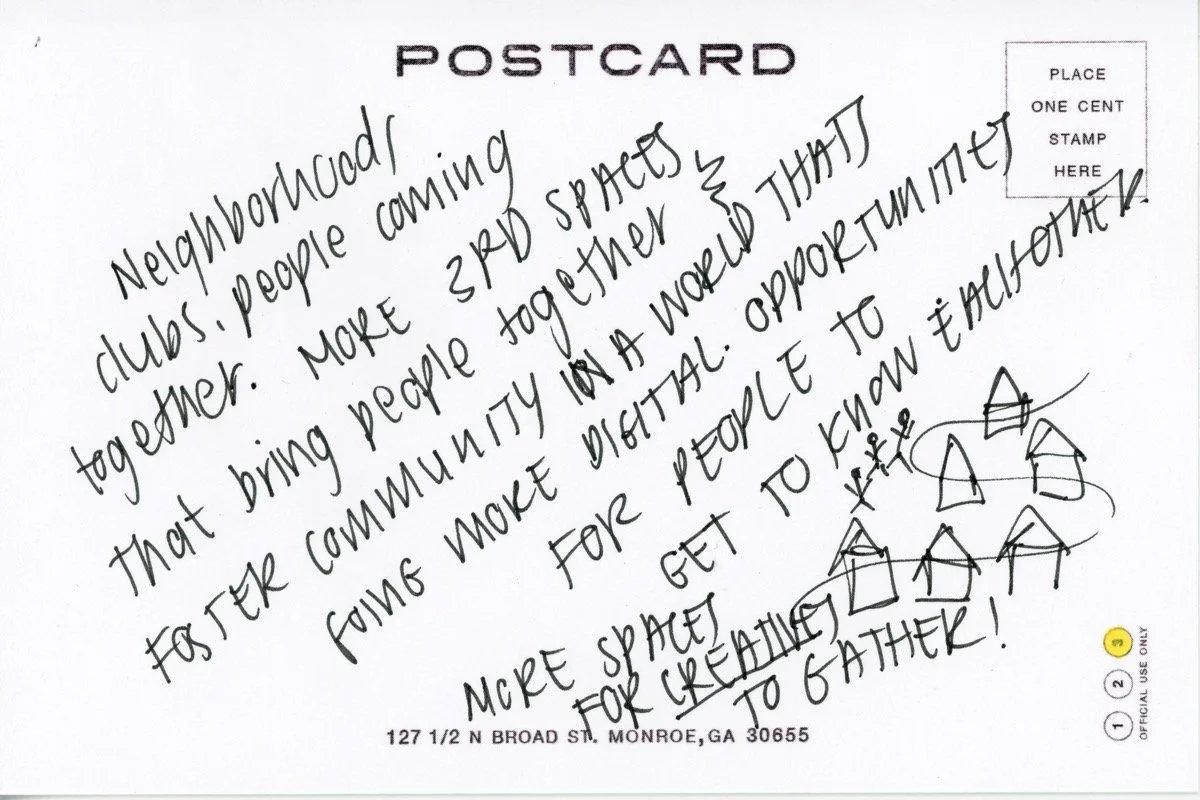 POSTCARD
PLACE
ONE CENT
STAMP
HERE
Neighborhood,
clubs, people coming
together. MORE 3RD SPACES
that bring people together &
FOSTER COMMUNITY IN A WORLD THATS
GOING MORE DIGITAL. OPPORTUNITIES
FOR PEOPLE TO
GET TO KNOW EACHOTHER
MORE SPACES
FOR CREATIVES
TO GATHER!
127 1/2 N BROAD ST. MONROE, GA 30655
1 2 3
OFFICIAL USE ONLY